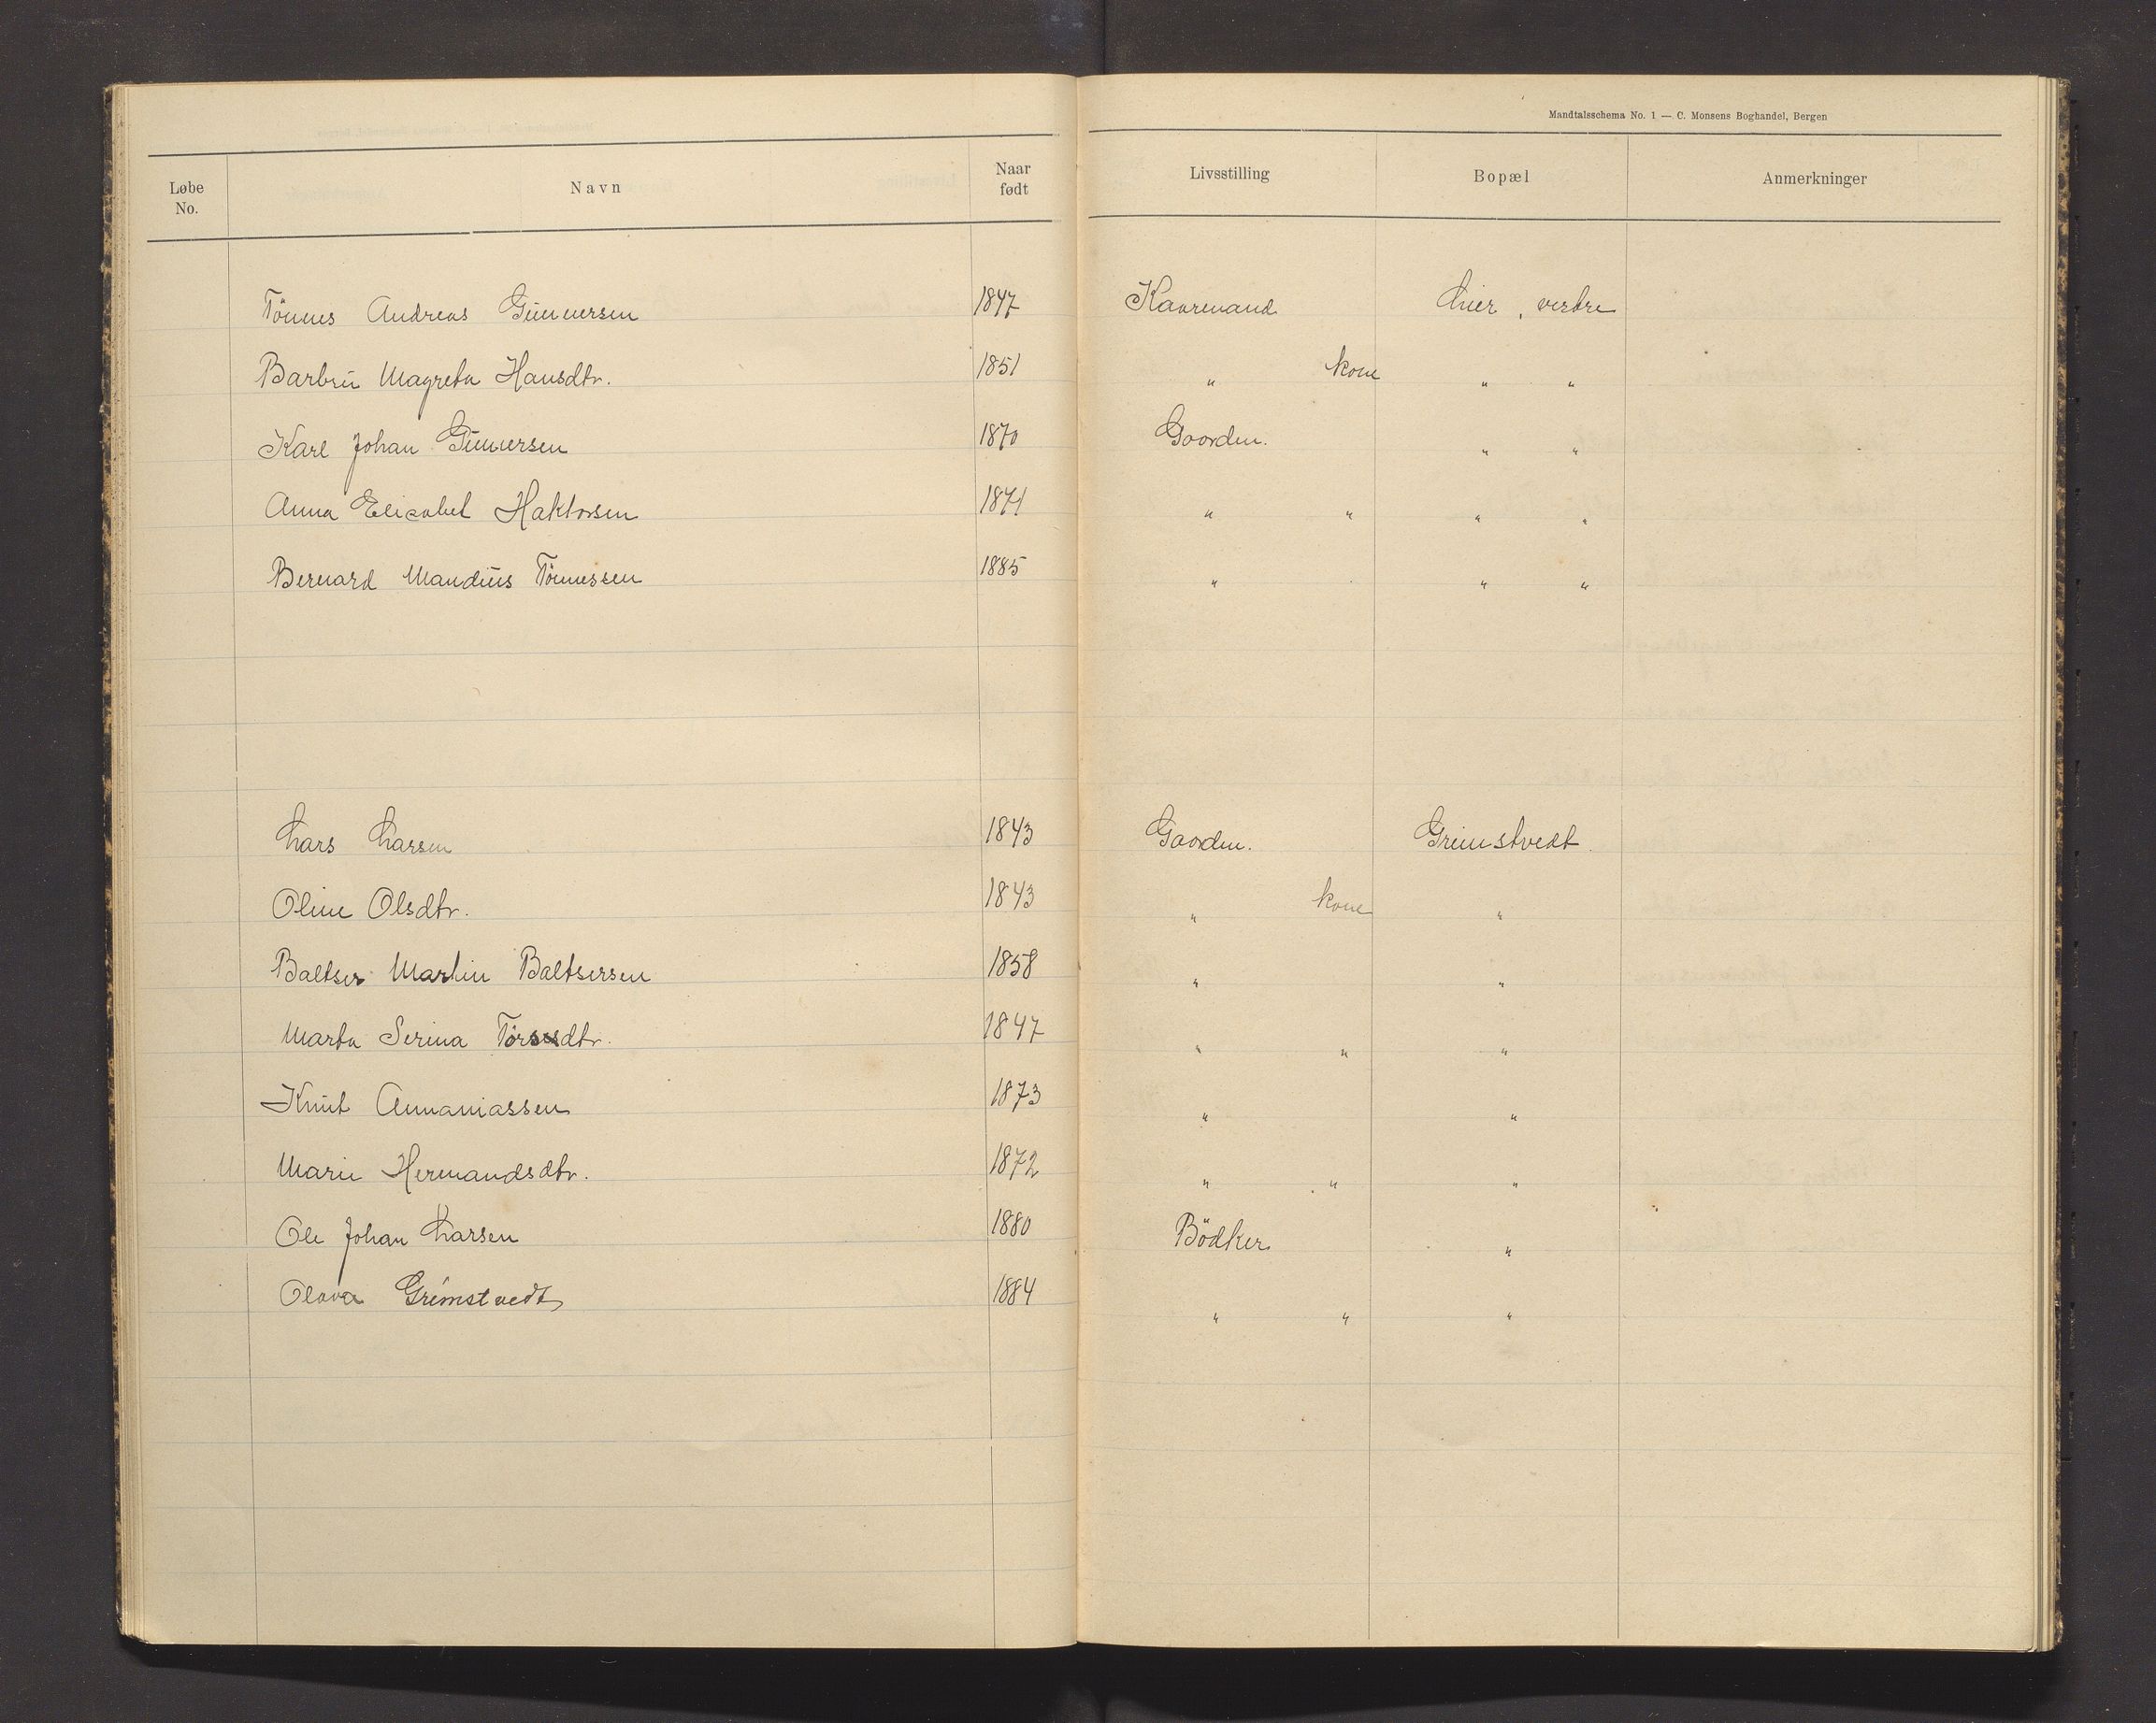 Mandtalsschema No. 1 — C. Monsens Boghandel, Bergen
Løbe No. Navn Naar født Livsstilling Bopæl Anmerkninger
Tönnes Andreas Gunnersen 1847 Kaaremand Lier, vestre
Barbru Magreta Hansdtr. 1851 " kone " "
Karl Johan Gunnersen 1870 Gaardm. " "
Anna Elisabet Haktorsen 1871 " " " "
Bernard Mandius Tönnessen 1885 " " "
Lars Larsen 1843 Gaardm. Grimstvedt.
Oline Olsdtr. 1843 " kone "
Baltser Martin Baltsersen 1858 " "
Marta Serina dtr. 1847 " " "
Knut Annaniassen 1873 " "
Marie Hermandsdtr. 1872 " " "
Ole Johan Larsen 1880 Bödker "
Olava Grimstvedt 1884 " " "